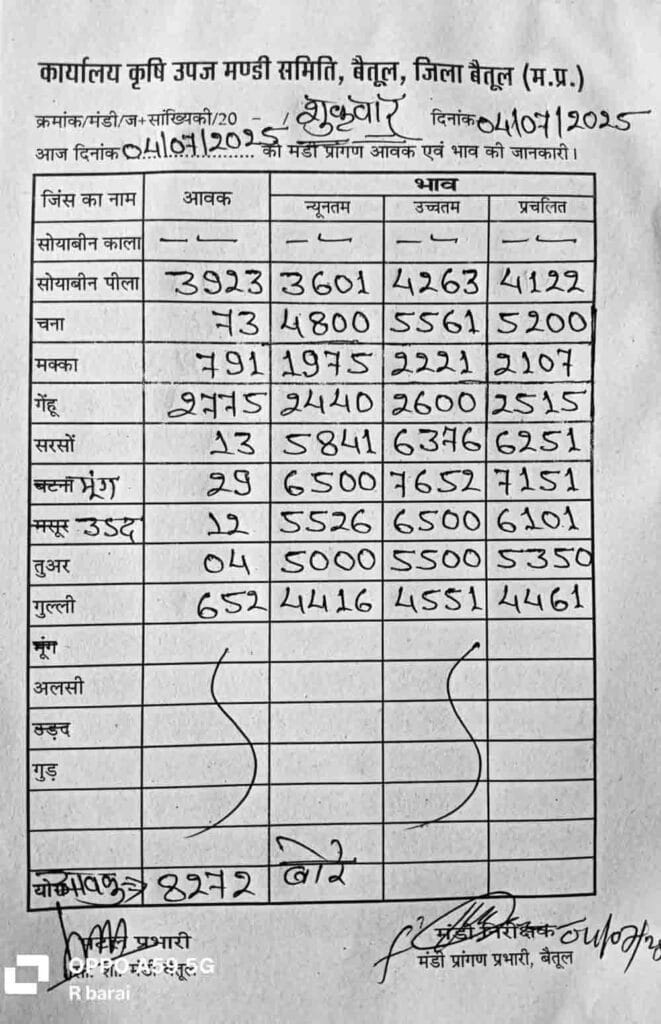 कार्यालय कृषि उपज मण्डी समिति, बैतूल, जिला बैतूल (म.प्र.)
क्रमांक/मंडी/ज+सांख्यिकी/20 - / शुक्रवार दिनांक 04/07/2025
आज दिनांक 04/07/2025 की मंडी प्रांगण आवक एवं भाव की जानकारी।
जिंस का नाम आवक भाव
न्यूनतम उच्चतम प्रचलित
सोयाबीन काला — — — — — — — —
सोयाबीन पीला 3923 3601 4263 4122
चना 73 4800 5561 5200
मक्का 791 1975 2221 2107
गेंहू 2775 2440 2600 2515
सरसों 13 5841 6376 6251
बटना मूंग 29 6500 7652 7151
मसूर उडद 12 5526 6500 6101
तुअर 04 5000 5500 5350
गुल्ली 652 4416 4551 4461
मूंग
अलसी
उड़द
गुड़
योग आवक 8272 बोरे
प्रभारी मंडी निरीक्षक
मंडी बैतूल मंडी प्रांगण प्रभारी, बैतूल
OPPO A59 5G
R barai